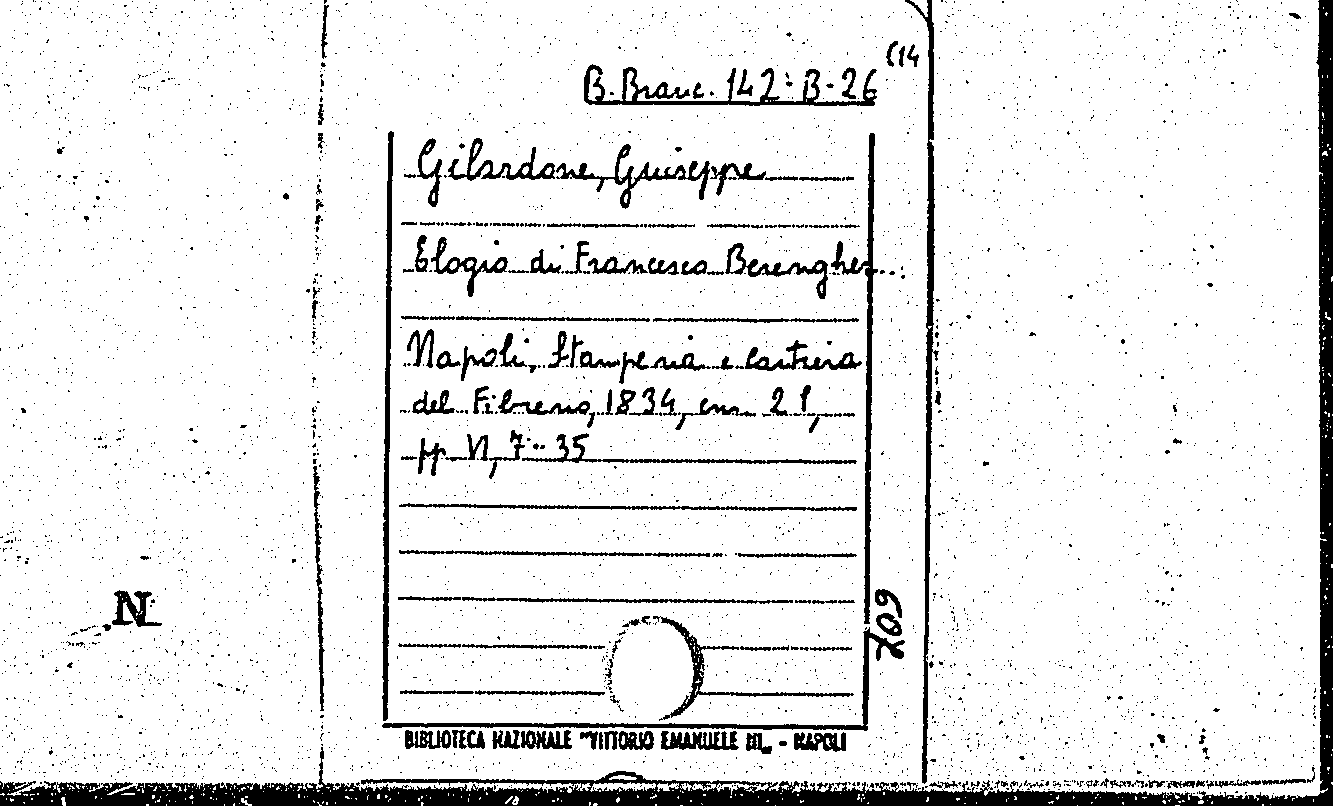 (14
B. Branc. 142: B-26
Gilardone, Giuseppe
Elogio di Francesco Berengher...
Napoli, Stamperia e cartiera
del Fibreno, 1834, cm. 21,
pp VI, 7-35
709
N
BIBLIOTECA NAZIONALE "VITTORIO EMANUELE III" - NAPOLI